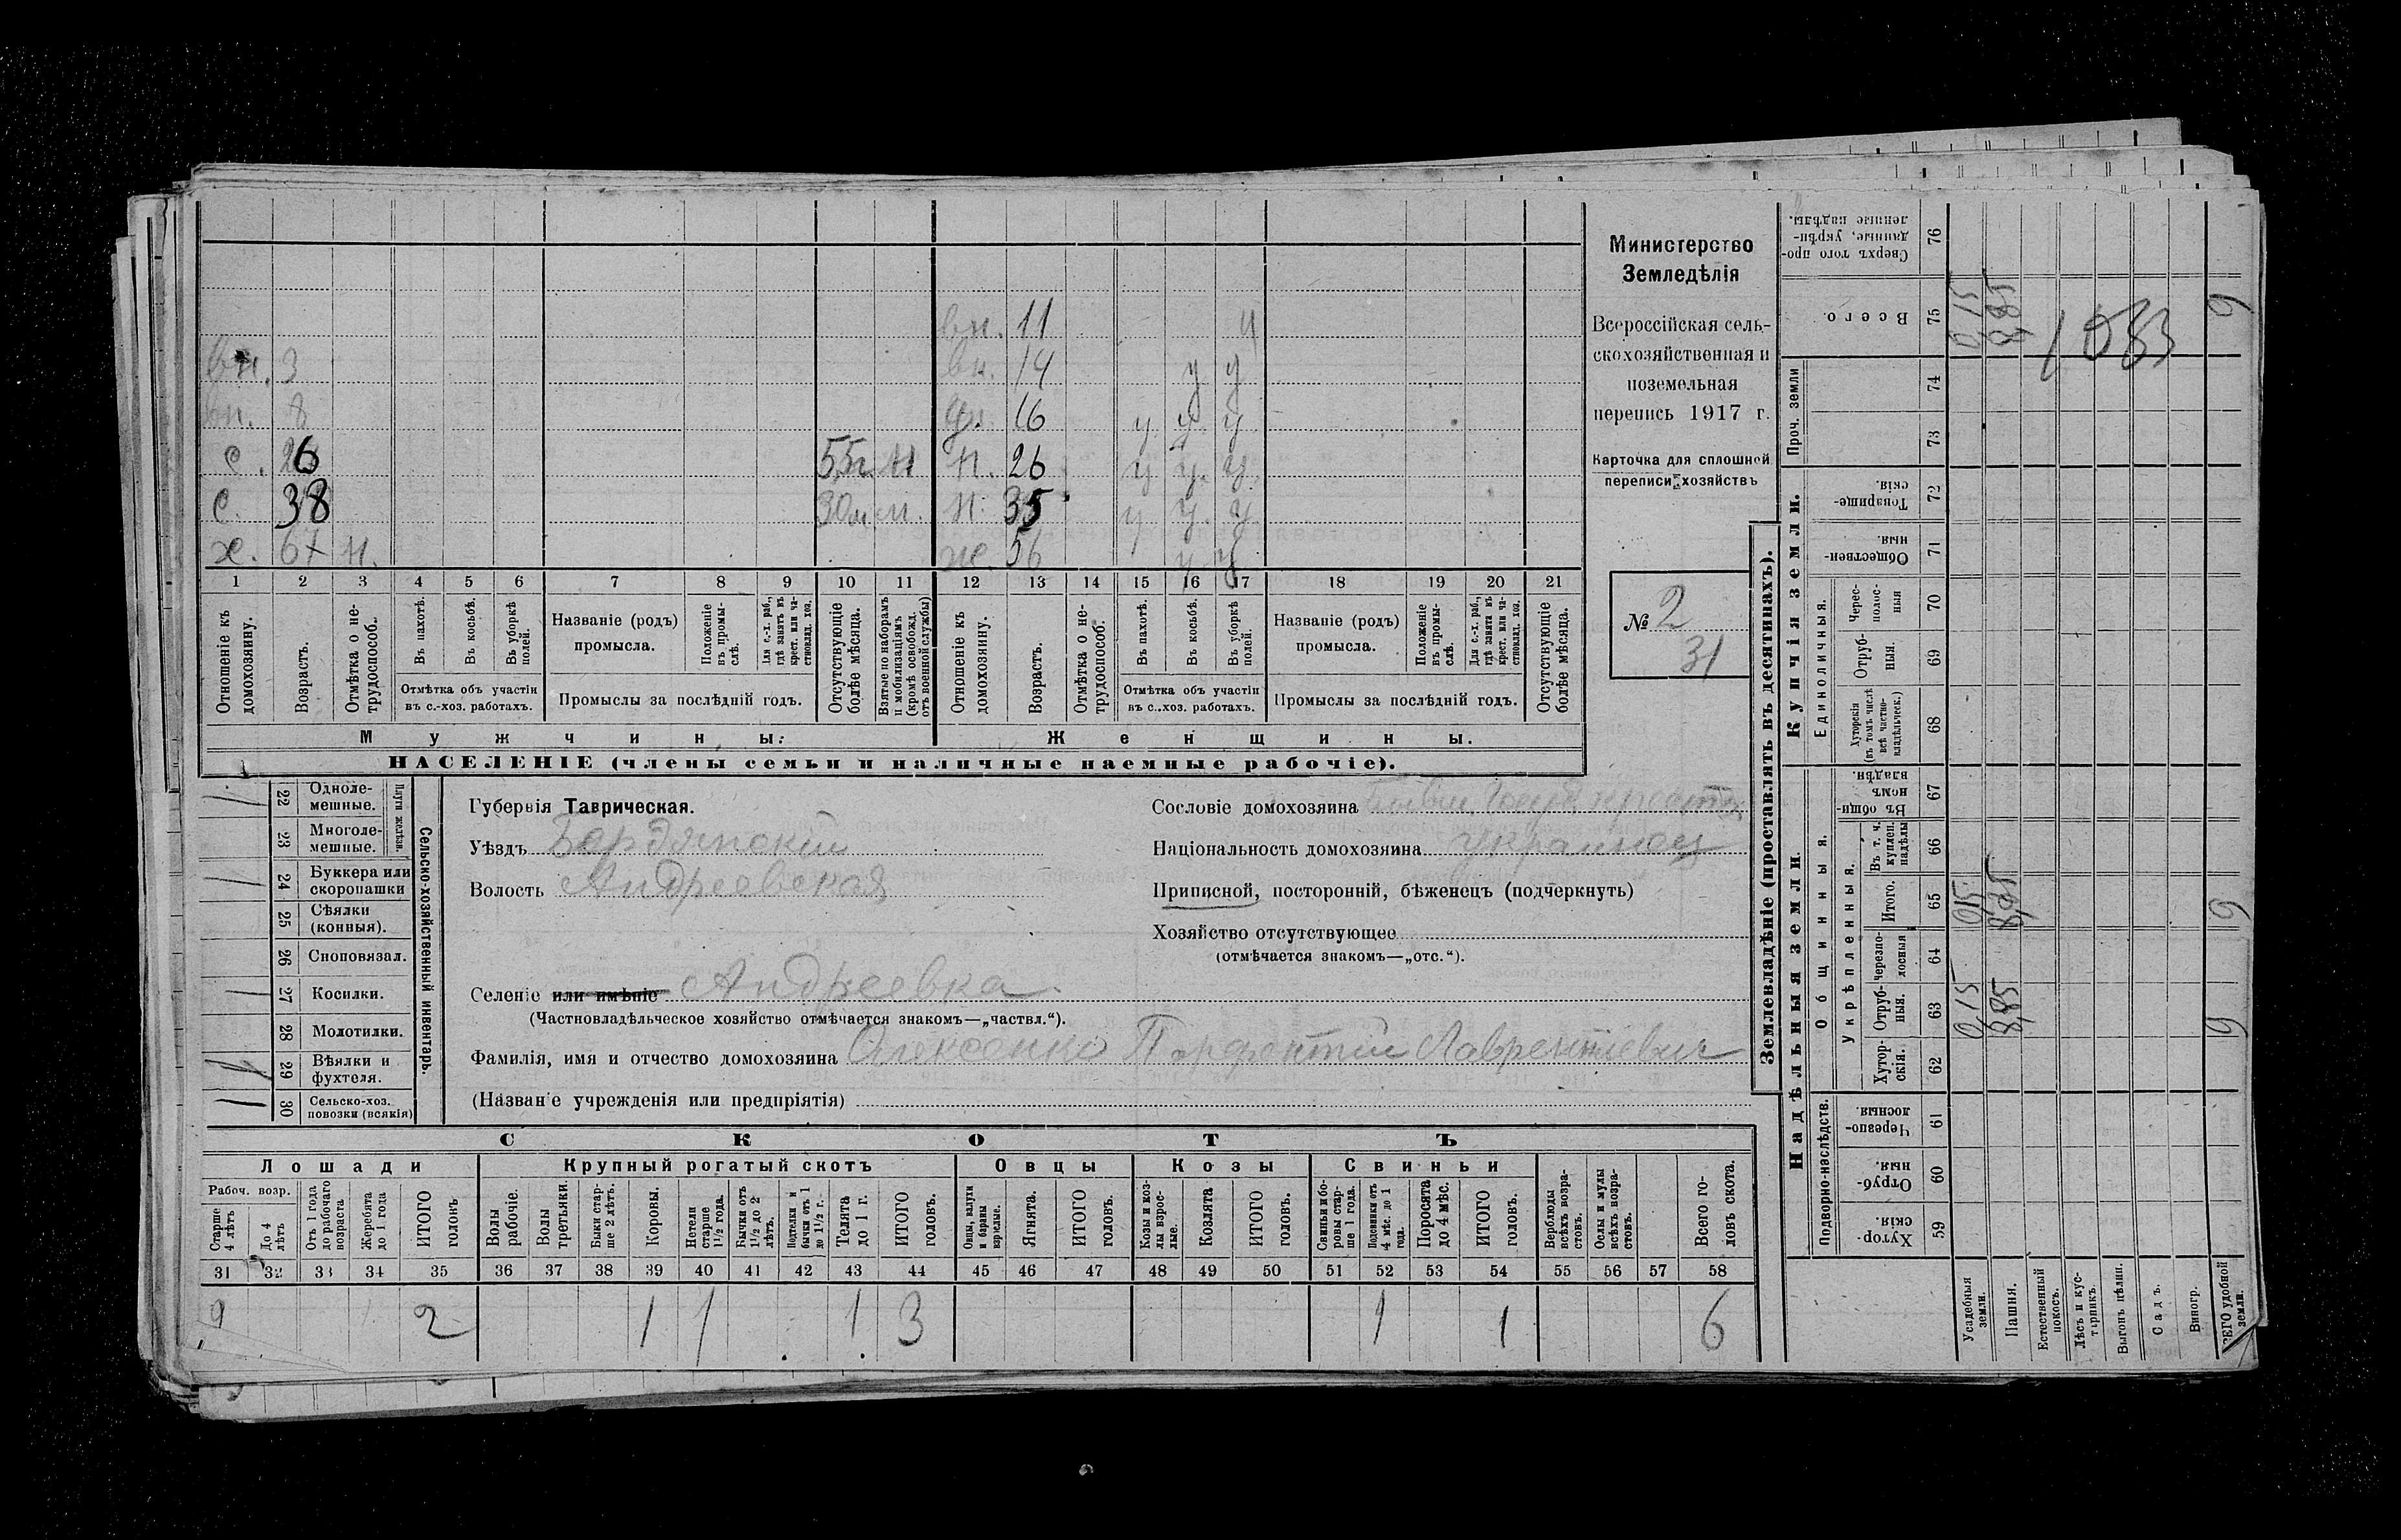 вн. 11 у
вн. 3 вн. 14 у у
вн. 8 дч. 16 у. у. у
с. 26 55м. м н. 26 у у. у.
с. 38 30м м. н. 35 у у. у
х. 67 н. ж. 56 у у
1 2 3 4 5 6 7 8 9 10 11 12 13 14 15 16 17 18 19 20 21
Отношеніе къ домохозяину.
Возрастъ.
Отмѣтка о не-
трудоспособ.
Въ пахотѣ.
Въ косьбѣ.
Въ уборкѣ
полей.
Отмѣтка объ участіи
въ с.-хоз. работахъ.
Названіе (родъ)
промысла.
Положеніе
въ промы-
слѣ.
Для с.-х. раб.,
гдѣ занятъ въ
крест. или ча-
стновлад. хоз.
Промыслы за послѣдній годъ.
Отсутствующіе
болѣе мѣсяца.
Взятые по наборамъ
и мобилизаціямъ
(кромѣ освобожд.
отъ военной службы)
Отношеніе къ
домохозяину.
Возрастъ.
Отмѣтка о не-
трудоспособ.
Въ пахотѣ.
Въ косьбѣ.
Въ уборкѣ
полей.
Отмѣтка объ участіи
въ с..хоз. работахъ.
Названіе (родъ)
промысла.
Положеніе
въ промы-
слѣ.
Для с.-х. раб.,
гдѣ занята въ
крест. или ча-
стновлад. хоз.
Промыслы за послѣдній годъ.
Отсутствующіе
болѣе мѣсяца.
Мужчины.
Женщины.
НАСЕЛЕНІЕ (члены семьи и наличные наемные рабочіе).
Министерство
Земледѣлія
Всероссійская сель-
скохозяйственная и
поземельная
перепись 1917 г.
Карточка для сплошной
переписи хозяйствъ
№ 2
31
22 Одноле-
мешные.
23 Многоле-
мешные.
Плуги желѣзн.
24 Буккера или
скоропашки
25 Сѣялки
(конныя).
26 Сноповязал.
27 Косилки.
28 Молотилки.
29 Вѣялки и
фухтеля.
30 Сельско-хоз.
повозки (всякія)
Сельско-хозяйственный инвентарь.
Губернія Таврическая.
Уѣздъ Бердянскій
Волость Андреевская
Селеніе или имѣніе Андреевка.
(Частновладѣльческое хозяйство отмѣчается знакомъ—„частвл.“).
Фамилія, имя и отчество домохозяина Олексенко Парфентій Лаврентіевич
(Названіе учрежденія или предпріятія)
Сословіе домохозяина
Національность домохозяина украинец
Приписной, посторонній, бѣженецъ (подчеркнуть)
Хозяйство отсутствующее
(отмѣчается знакомъ—„отс.“).
СКОТЪ
Лошади
Крупный рогатый скотъ
Овцы
Козы
Свиньи
Рабоч. возр.
Старше
4 лѣтъ
До 4
лѣтъ
Отъ 1 года
до рабочаго
возраста
Жеребята
до 1 года
ИТОГО
головъ
Волы
рабочіе.
Волы
третьяки.
Быки стар-
ше 2 лѣтъ.
Коровы.
Нетели
старше
1½ года.
Бычки отъ
1½ до 2
лѣтъ.
Подтелки и
бычки отъ 1
до 1½ г.
Телята
до 1 г.
ИТОГО
головъ.
Овцы, валухи
и бараны
взрослые.
Ягнята.
ИТОГО
головъ.
Козы и коз-
лы взрос-
лые.
Козлята
ИТОГО
головъ.
Свиньи и бо-
ровы стар-
ше 1 года.
Подсвинки отъ
4 мѣс. до 1
года.
Поросята
до 4 мѣс.
ИТОГО
головъ.
Верблюды
всѣхъ возра-
стовъ.
Ослы и мулы
всѣхъ возра-
стовъ.
Всего го-
ловъ скота.
31 32 33 34 35 36 37 38 39 40 41 42 43 44 45 46 47 48 49 50 51 52 53 54 55 56 57 58
2 2 1 1 1 3 1 1 6
Землевладѣніе (проставлять въ десятинахъ).
Надѣльныя земли.
Купчія земли.
Проч. земли
Сверхъ того про-
данные, укрѣп-
ленные надѣлы.
76
Всего.
75
0,15
8,85
1083
9
74
73
Товарище-
скія.
72
Обществен-
ныя.
71
Единоличныя.
Черес-
полос-
ныя
70
Отруб-
ныя.
69
Хуторскія
(въ томъ числѣ
всѣ частно-
владѣльческ.)
68
Общинныя.
Въ общи-
номъ
владѣн.
67
Укрѣпленныя.
Въ т. ч.
куплен.
надѣлы
66
Итого.
65
0,15
8,85
9
Черезпо-
лосныя
64
Отруб-
ныя.
63
0,15
8,85
9
Хутор-
скія.
62
Подворно-наслѣдств.
Черезпо-
лосныя.
61
Отруб-
ныя.
60
Хутор-
скія.
59
Усадебныя
земли.
Пашня.
Естественный
покосъ.
Лѣсъ и кус-
тарникъ.
Выгонъ цѣлин.
Садъ.
Виногр.
ВСЕГО удобной
земли.